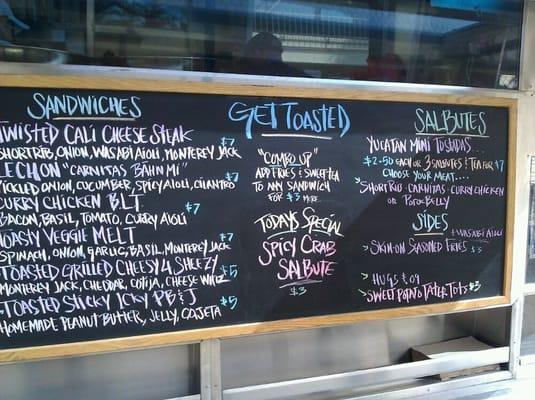 SANDWICHES
TWISTED CALI CHEESE STEAK $7
SHORTRIB, ONION, WASABI AIOLI, MONTEREY JACK
LECHON "CARNITAS BAHN MI" $7
PICKLED ONION, CUCUMBER, SPICY AIOLI, CILANTRO
CURRY CHICKEN BLT $7
BACON, BASIL, TOMATO, CURRY AIOLI
TOASTY VEGGIE MELT $7
SPINACH, ONION, GARLIC, BASIL, MONTEREY JACK
TOASTED GRILLED CHEESY 4 SHEEZY $5
MONTEREY JACK, CHEDDAR, COTIJA, CHEESE WHIZ
TOASTED STICKY ICKY PB & J $5
HOMEMADE PEANUT BUTTER, JELLY, COJETA
GET TOASTED
"COMBO UP"
ADD FRIES & SWEET TEA
TO ANY SANDWICH
FOR $3 MORE
TODAYS SPECIAL
SPICY CRAB
SALBUTE
$3
SALBUTES
YUCATAN MINI TOSTADAS...
$2.50 EACH OR 3 SALBUTES & TEA FOR $7
CHOOSE YOUR MEAT....
SHORT RIB - CARNITAS - CURRY CHICKEN
OR PORTOBELLY
SIDES
+ WASABI AIOLI
> SKIN-ON SEASONED FRIES $3
> HUGS $.09
> SWEET POTATO TATER TOTS $3